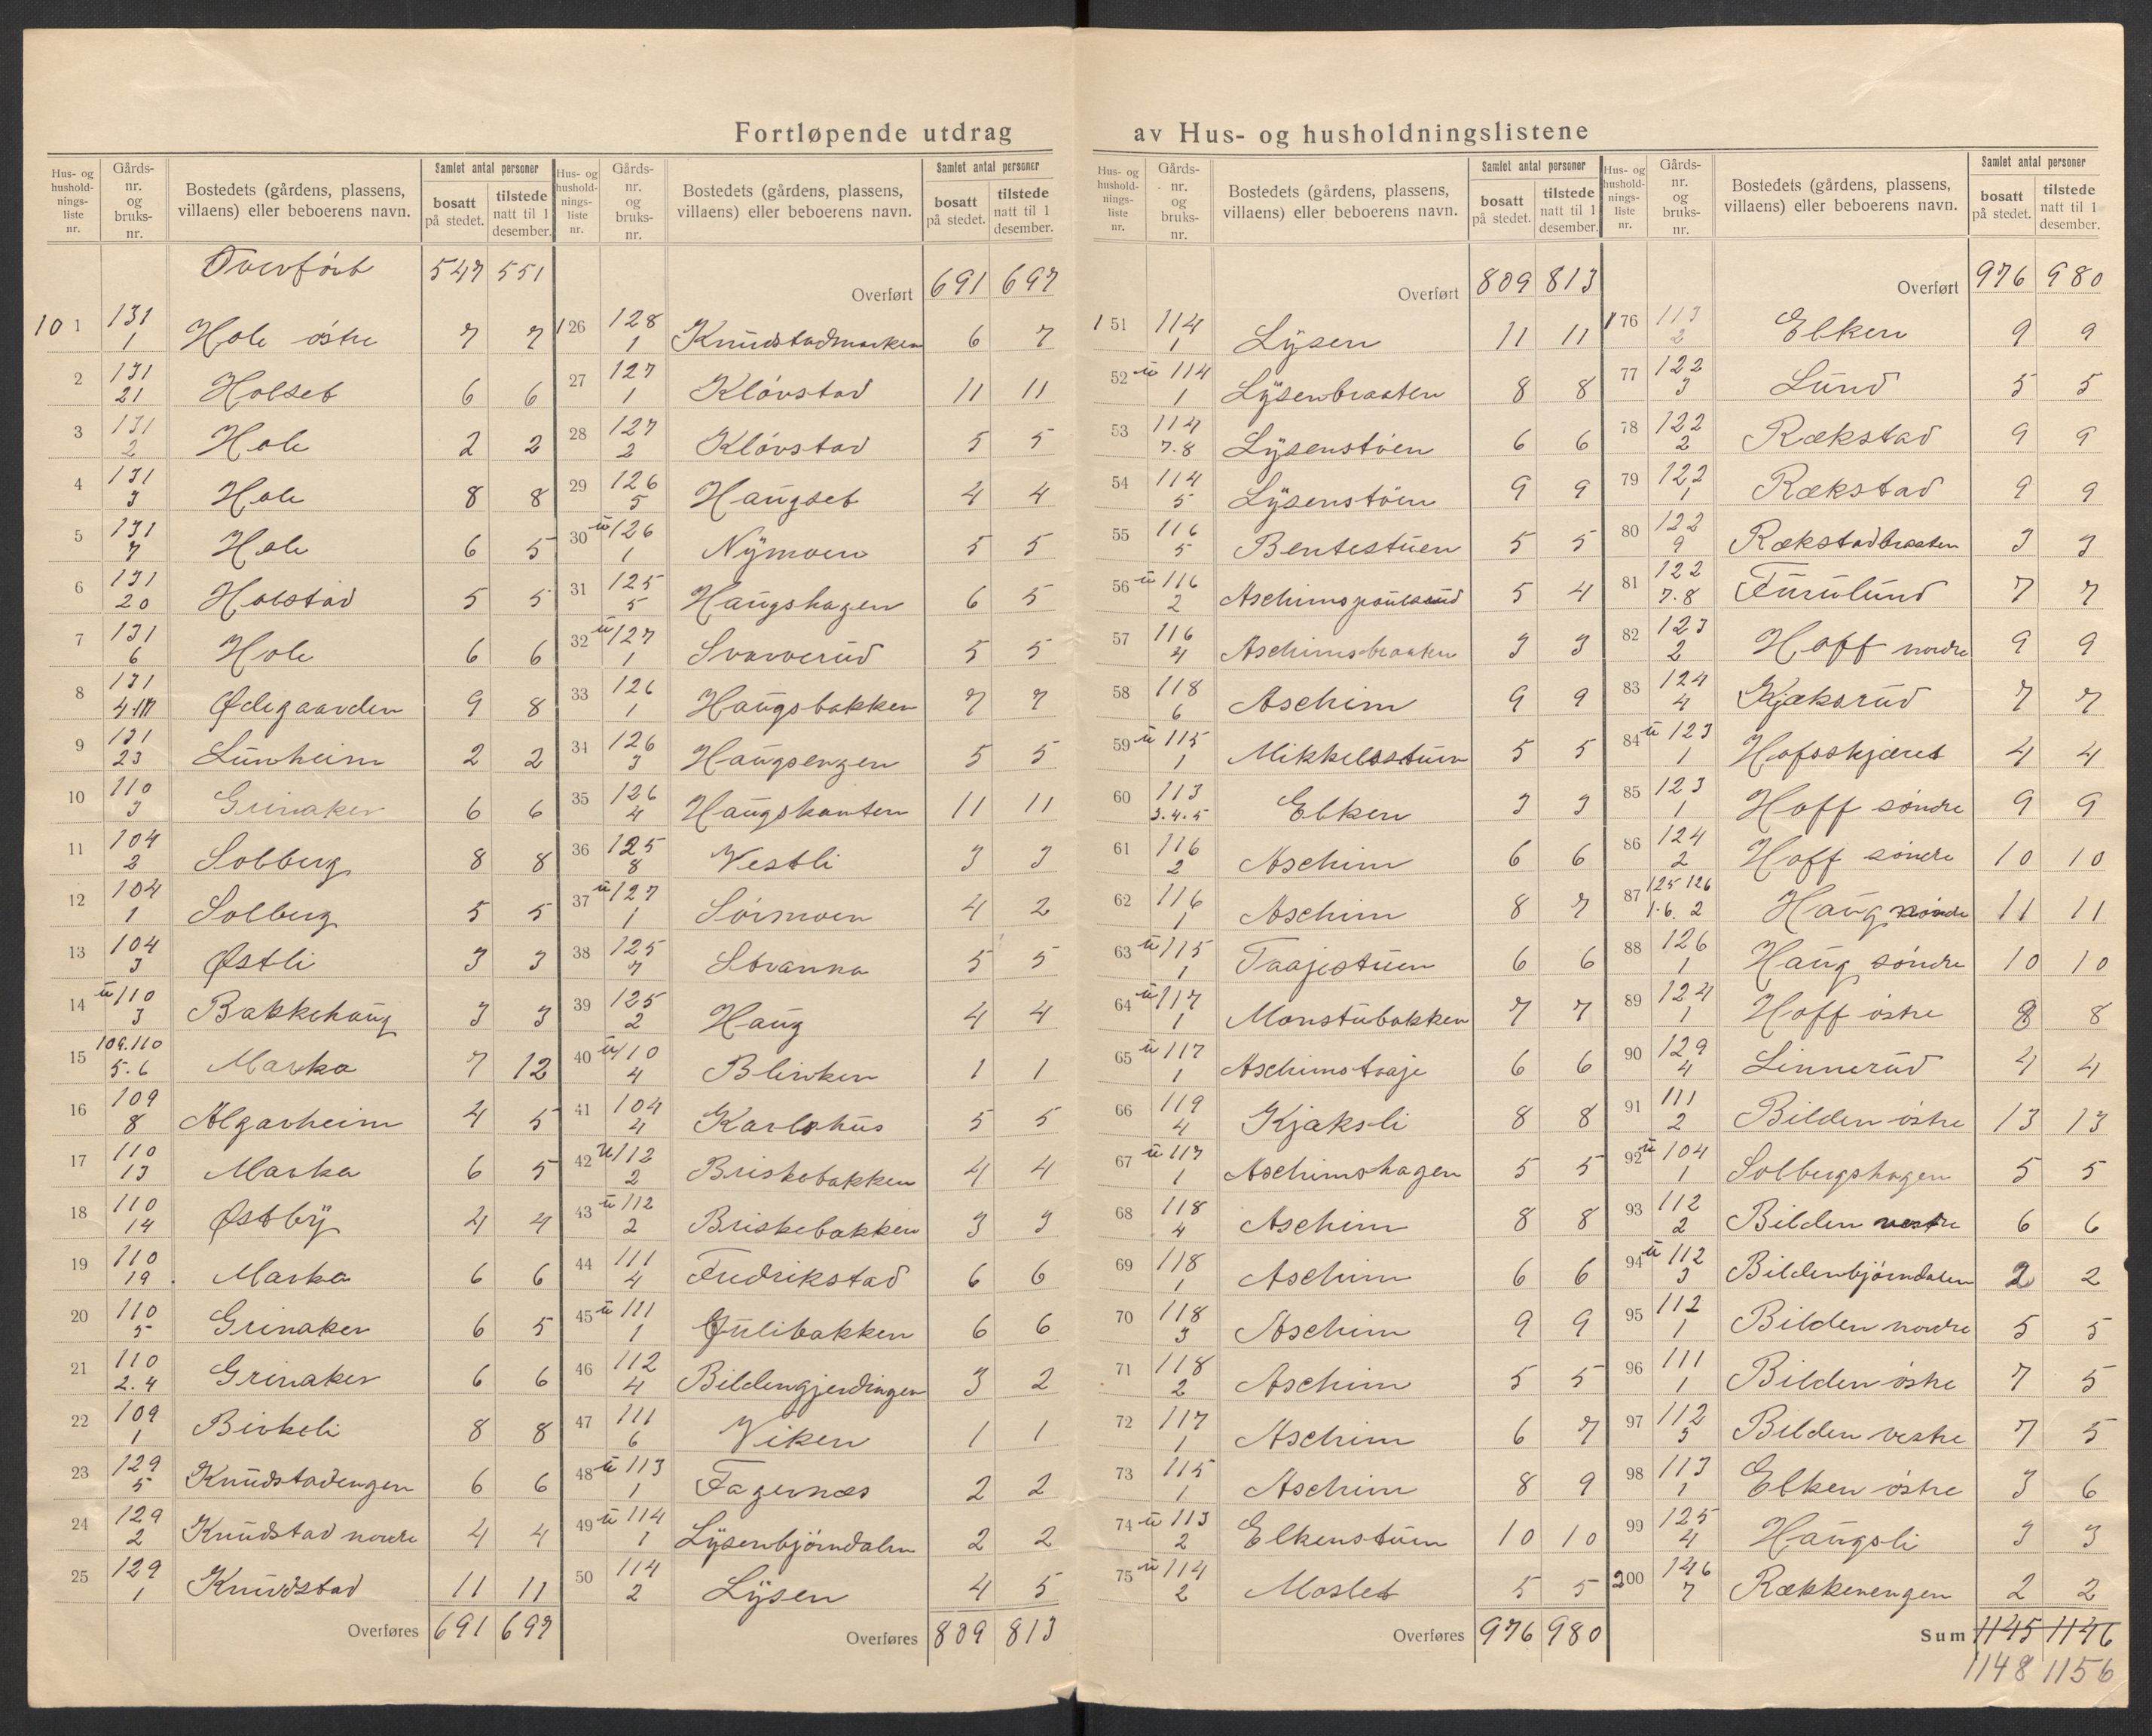 Fortløpende utdrag av Hus- og husholdningslistene
Hus- og hushold-nings-liste nr. | Gårds-nr. og bruks-nr. | Bostedets (gårdens, plassens, villaens) eller beboerens navn. | Samlet antal personer | bosatt på stedet. | tilstede natt til 1 desember.
Overført 547 551
101 131/1 Hole østre 7 7
2 131/21 Holset 6 6
3 131/2 Hole 2 2
4 131/3 Hole 8 8
5 131/7 Hole 6 5
6 131/20 Holstad 5 5
7 131/6 Hole 6 6
8 131/4 Ødegaarden 9 8
9 131/23 Lunheim 2 2
10 110/3 Grinaker 6 6
11 104/2 Solberg 8 8
12 104/1 Solberg 5 5
13 104/3 Østli 3 3
14 u 110/3 Bakkehaug 3 3
15 109.110/5.6 Marka 7 12
16 109/8 Algarheim 4 5
17 110/13 Marka 6 5
18 110/14 Østbÿ 4 4
19 110/19 Marka 6 6
20 110/5 Grinaker 6 5
21 110/2.4 Grinaker 6 6
22 109/1 Birkeli 8 8
23 129/5 Knudstadengen 6 6
24 129/2 Knudstad nordre 4 4
25 129/1 Knudstad 11 11
Overføres 691 697
Hus- og hushold-nings-liste nr. | Gårds-nr. og bruks-nr. | Bostedets (gårdens, plassens, villaens) eller beboerens navn. | Samlet antal personer | bosatt på stedet. | tilstede natt til 1 desember.
Overført 691 697
126 128/1 Knudstadmarken 6 7
27 127/1 Kløvstad 11 11
28 127/2 Kløvstad 5 5
29 126/5 Haugset 4 4
30 u 126/1 Nÿmoen 5 5
31 125/5 Haugshagen 6 5
32 u 127/1 Svarverud 5 5
33 126/1 Haugsbakken 7 7
34 126/3 Haugsengen 5 5
35 126/4 Haugskanten 11 11
36 125/8 Vestli 3 3
37 u 127/1 Sørmoen 4 2
38 125/7 Stranna 5 5
39 125/2 Haug 4 4
40 u 110/4 Blinken 1 1
41 104/4 Karlshus 5 5
42 u 112/2 Briskebakken 4 4
43 u 112/2 Briskebakken 3 3
44 111/4 Fredrikstad 6 6
45 u 111/1 Julibakken 6 6
46 112/4 Bildengjerdingen 3 2
47 111/6 Viken 1 1
48 u 113/1 Fagernæs 2 2
49 u 114/1 Lÿsenbjørndalen 2 2
50 114/2 Lÿsen 4 5
Overføres 809 813
Hus- og hushold-nings-liste nr. | Gårds-nr. og bruks-nr. | Bostedets (gårdens, plassens, villaens) eller beboerens navn. | Samlet antal personer | bosatt på stedet. | tilstede natt til 1 desember.
Overført 809 813
151 114/1 Lÿsen 11 11
52 u 114/1 Lÿsenbraaten 8 8
53 114/7.8 Lÿsenstøen 6 6
54 114/5 Lÿsenstøen 9 9
55 116/5 Bentestuen 5 5
56 u 116/2 Aschimspoulsrud 5 4
57 116/4 Aschimsbraaten 3 3
58 118/6 Aschim 9 9
59 u 115/1 Mikkelsstuen 5 5
60 113/3.4.5 Elken 3 3
61 116/2 Aschim 6 6
62 116/1 Aschim 8 7
63 u 115/1 Taajestuen 6 6
64 u 117/1 Monstubakken 7 7
65 u 117/1 Aschimstaaje 6 6
66 119/4 Kjaksli 8 8
67 u 117/1 Aschimshagen 5 5
68 118/4 Aschim 8 8
69 118/1 Aschim 6 6
70 118/3 Aschim 9 9
71 118/2 Aschim 5 5
72 117/1 Aschim 6 7
73 115/1 Aschim 8 9
74 u 113/2 Elkenstuen 10 10
75 u 114/2 Moslet 5 5
Overføres 976 980
Hus- og hushold-nings-liste nr. | Gårds-nr. og bruks-nr. | Bostedets (gårdens, plassens, villaens) eller beboerens navn. | Samlet antal personer | bosatt på stedet. | tilstede natt til 1 desember.
Overført 976 980
176 113/2 Elken 9 9
77 122/3 Lund 5 5
78 122/2 Rækstad 9 9
79 122/1 Rækstad 9 9
80 122/9 Rækstadbraaten 3 3
81 122/7.8 Furulund 7 7
82 123/2 Hoff nordre 9 9
83 124/4 Kjæksrud 7 7
84 u 123/1 Hofsskjæret 4 4
85 123/1 Hoff søndre 9 9
86 124/2 Hoff søndre 10 10
87 125 126/1.6. 2 Haug 11 11
88 126/1 Haug søndre 10 10
89 124/1 Hoff østre 8 8
90 129/4 Linnerud 4 4
91 111/2 Bilden østre 13 13
92 u 104/1 Solbergshagen 5 5
93 112/2 Bilden vestre 6 6
94 u 112/3 Bildenbjørndalen 2 2
95 112/1 Bilden nordre 5 5
96 111/1 Bilden østre 7 5
97 112/3 Bilden vestre 7 5
98 113/1 Elken østre 3 6
99 125/4 Haugsli 3 3
200 146/7 Rækkenengen 2 2
Sum 1145 1146
1148 1156